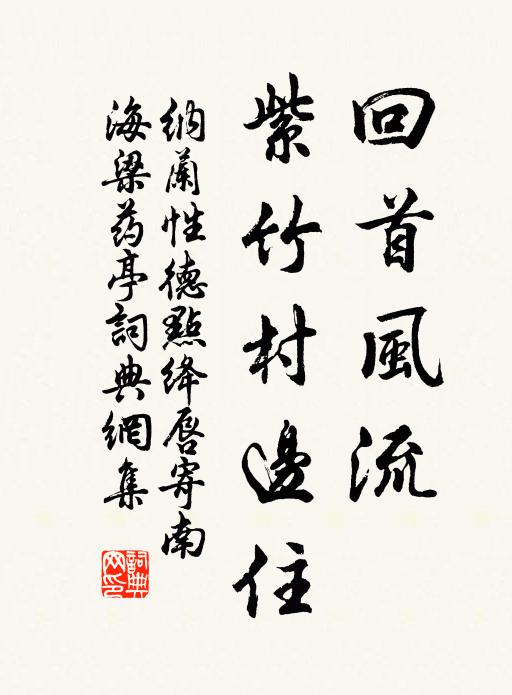 回首風流
紫竹村邊住
納蘭性德點絳唇寄南
海梁药亭詞典網集
詞典
网印